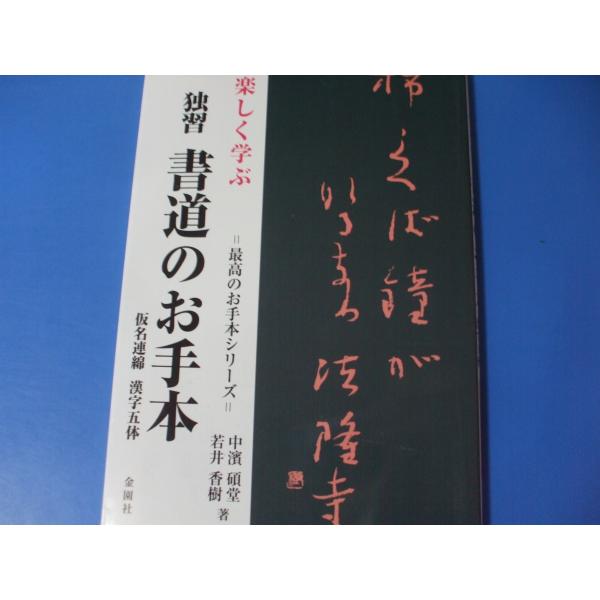 柿くへば鐘が
鳴るなり法隆寺
楽しく学ぶ
独習 書道のお手本
=最高のお手本シリーズ=
仮名連綿 漢字五体
中濱 碩堂
若井 香樹 著
金園社